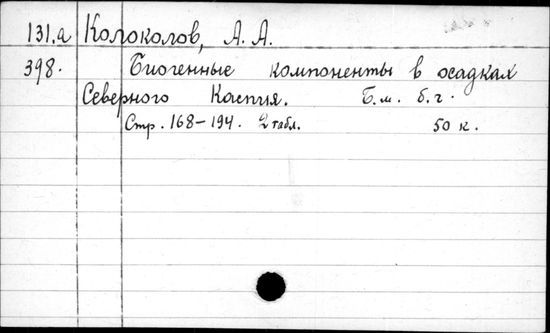 131.а Колоколов, А. А.
398. Биогенные компоненты в осадках
Северного Каспия. Б.м. б.г.
Стр. 168-194. 2 табл. 50 к.